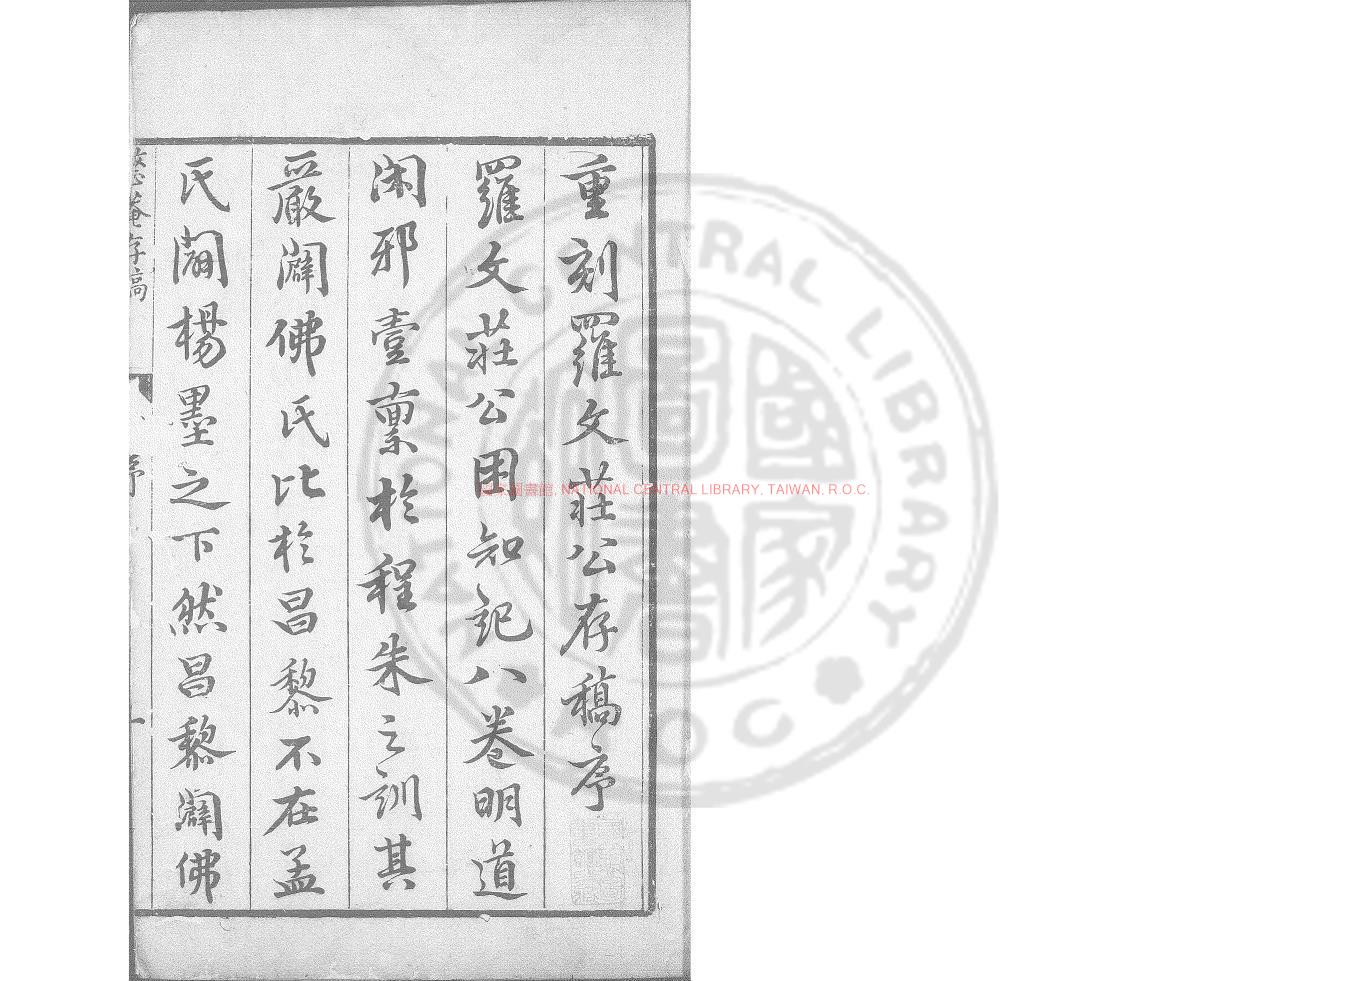 重刻羅文莊公存稿序
羅文莊公困知記八卷明道
闲邪壹禀於程朱之訓其
嚴闢佛氏比於昌黎不在孟
氏闢楊墨之下然昌黎闢佛
整菴存稿
序
一
國家圖書館, NATIONAL CENTRAL LIBRARY, TAIWAN, R.O.C.
NATIONAL CENTRAL LIBRARY
TAIWAN R.O.C.
國家圖書館